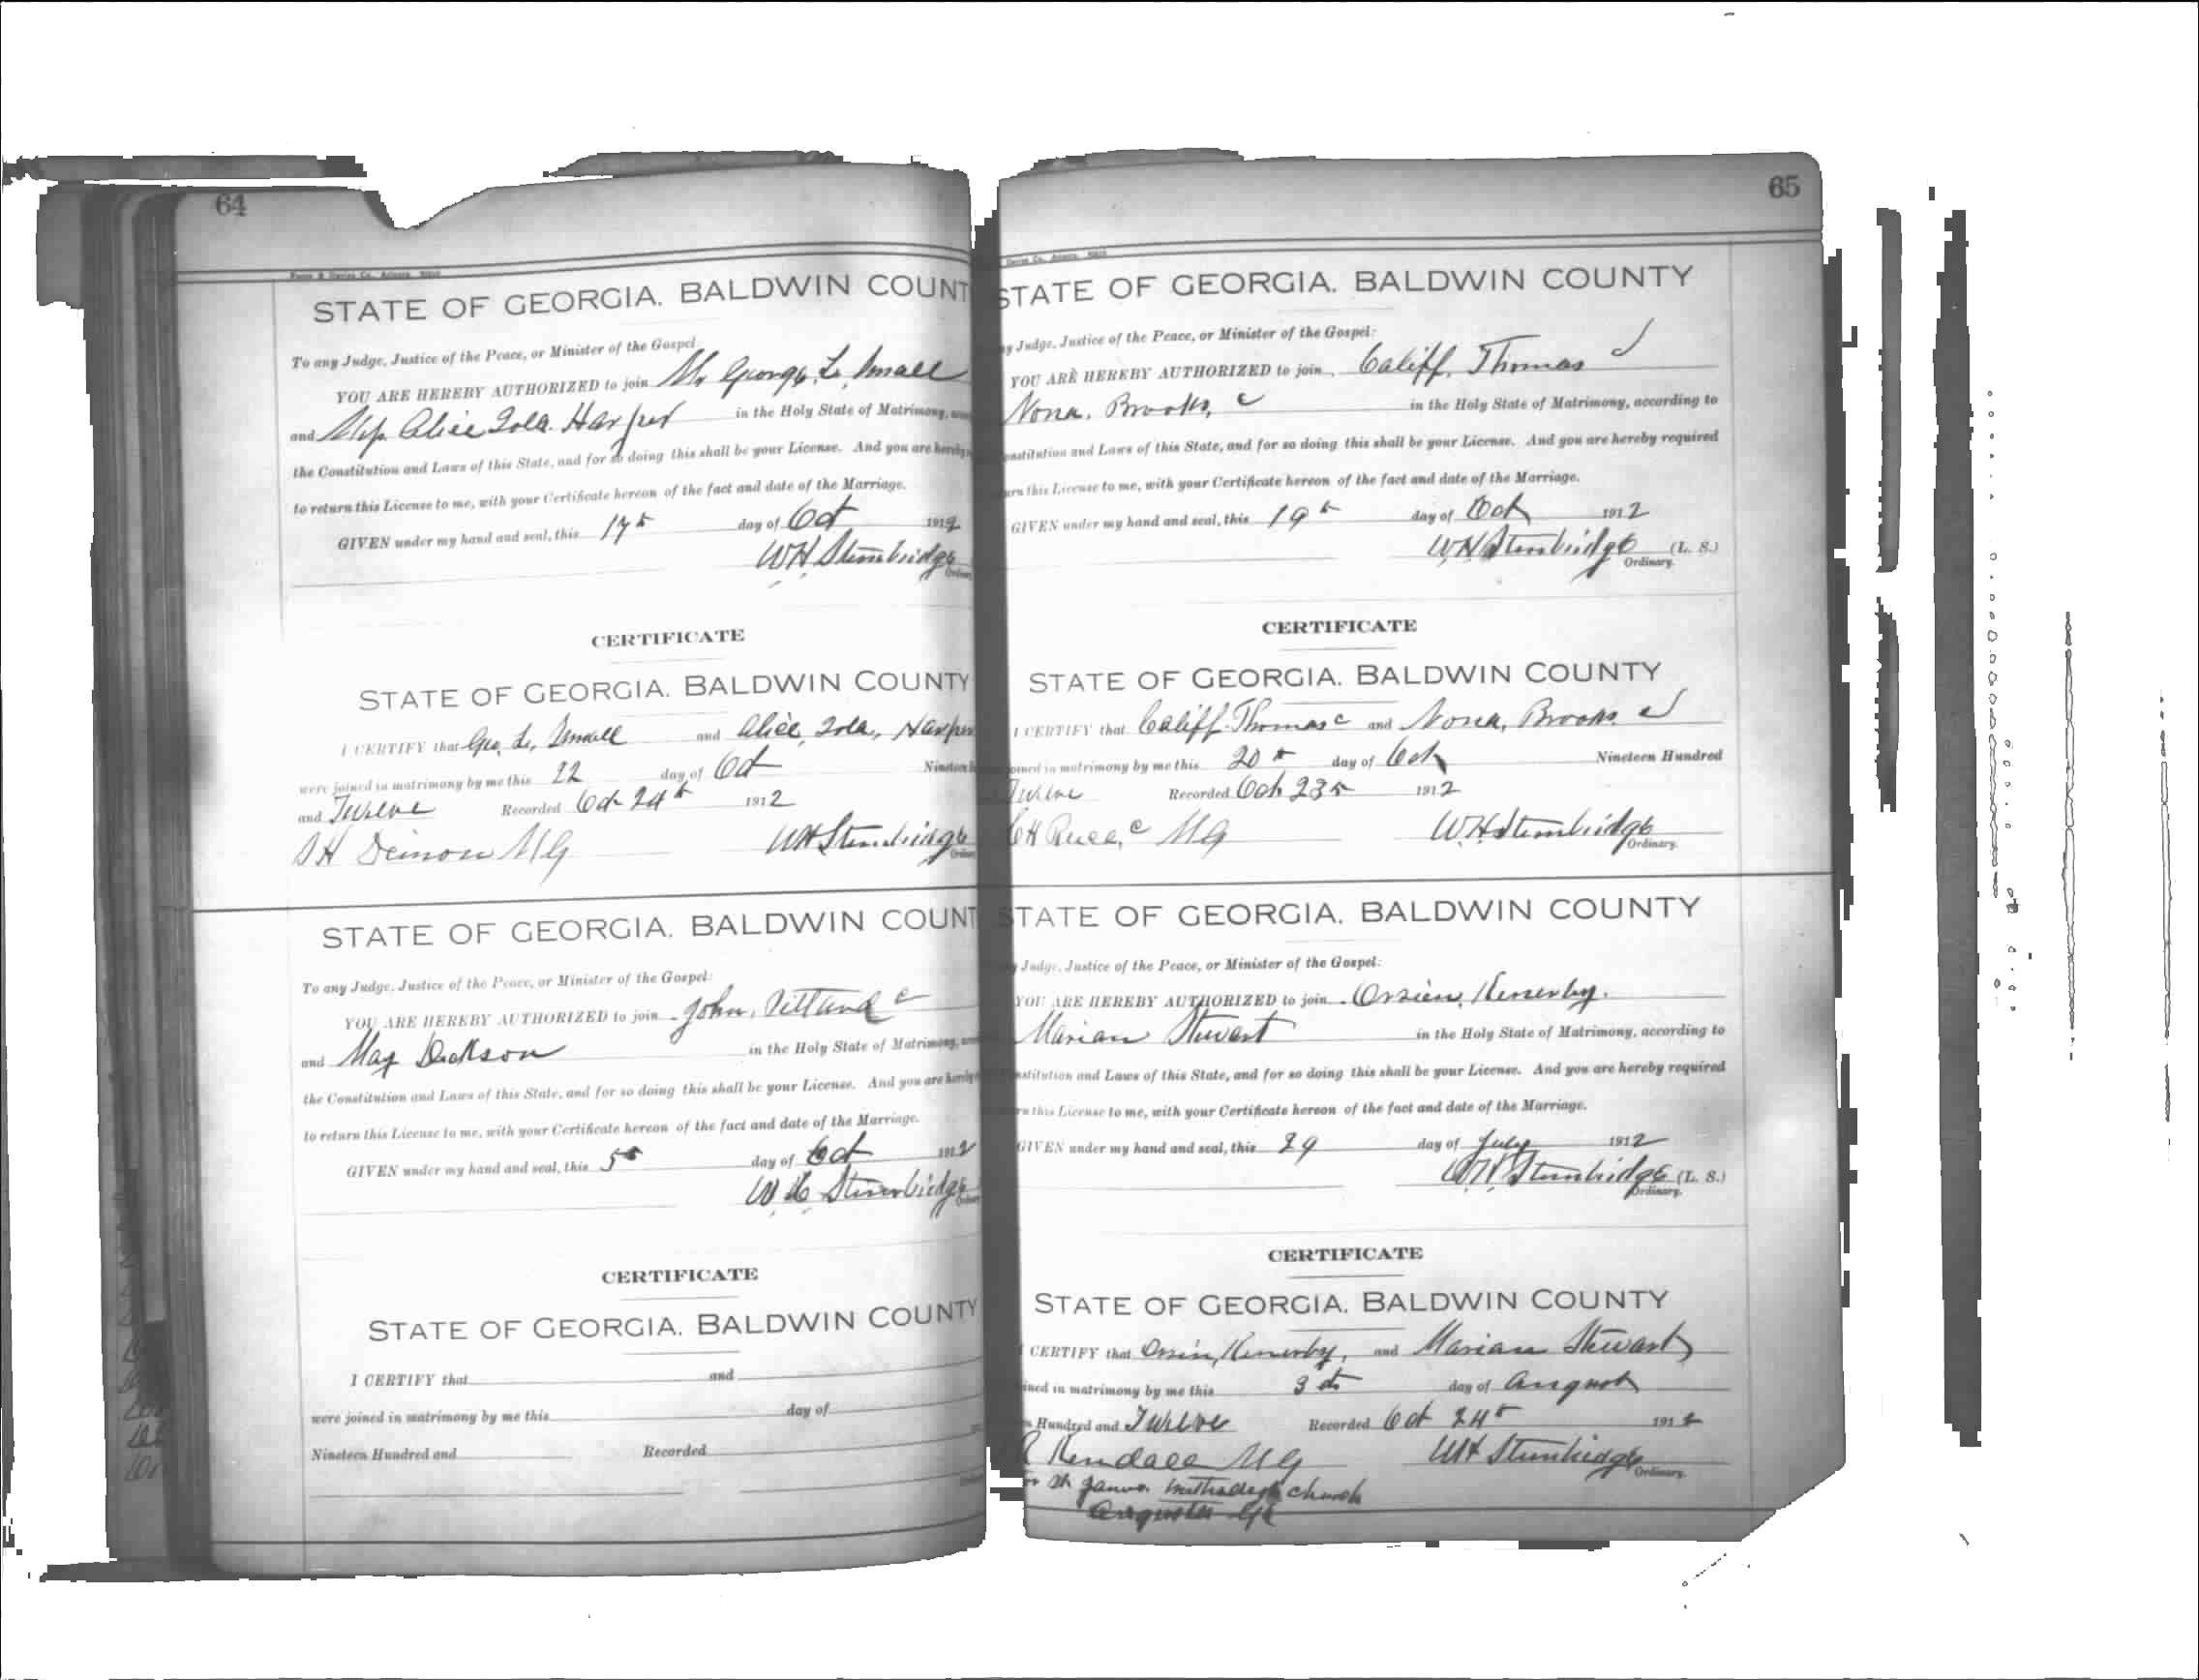 64
STATE OF GEORGIA. BALDWIN COUNT
To any Judge, Justice of the Peace, or Minister of the Gospel
YOU ARE HEREBY AUTHORIZED to join Mr George, L,
and Alice Iola Harper in the Holy State of Matrimony,
the Constitution and Laws of this State, and for so doing this shall be your License. And you are hereby
to return this License to me, with your Certificate hereon of the fact and date of the Marriage.
GIVEN under my hand and seal, this 17th day of Oct 1912
WH Stembridge
CERTIFICATE
STATE OF GEORGIA. BALDWIN COUNTY
I CERTIFY that Geo, L, and Alice, Iola, Harper
were joined in matrimony by me this 22 day of Oct Nineteen
and Twelve Recorded Oct 24th 1912
MG WH Stembridge
STATE OF GEORGIA. BALDWIN COUNT
To any Judge, Justice of the Peace, or Minister of the Gospel:
YOU ARE HEREBY AUTHORIZED to join John, c
and May in the Holy State of Matrimony,
the Constitution and Laws of this State, and for so doing this shall be your License. And you are hereby
to return this License to me, with your Certificate hereon of the fact and date of the Marriage.
GIVEN under my hand and seal, this 5th day of Oct 1912
W H Stembridge
CERTIFICATE
STATE OF GEORGIA. BALDWIN COUNTY
I CERTIFY that and
were joined in matrimony by me this day of
Nineteen Hundred and Recorded
65
STATE OF GEORGIA. BALDWIN COUNTY
Judge, Justice of the Peace, or Minister of the Gospel:
YOU ARE HEREBY AUTHORIZED to join Califf, Thomas c
Nona, Brooks, c in the Holy State of Matrimony, according to
and Laws of this State, and for so doing this shall be your License. And you are hereby required
this License to me, with your Certificate hereon of the fact and date of the Marriage.
GIVEN under my hand and seal, this 19th day of Oct 1912
W.H Stembridge (L. S.)
Ordinary.
CERTIFICATE
STATE OF GEORGIA. BALDWIN COUNTY
I CERTIFY that Califf Thomas c and Nona, Brooks c
in matrimony by me this 20th day of Oct Nineteen Hundred
Twelve Recorded Oct 23rd 1912
c MG W.H Stembridge
Ordinary.
STATE OF GEORGIA. BALDWIN COUNTY
Judge, Justice of the Peace, or Minister of the Gospel:
YOU ARE HEREBY AUTHORIZED to join
Marian Stewart in the Holy State of Matrimony, according to
and Laws of this State, and for so doing this shall be your License. And you are hereby required
this License to me, with your Certificate hereon of the fact and date of the Marriage.
GIVEN under my hand and seal, this 29 day of July 1912
W.H. Stembridge (L. S.)
Ordinary.
CERTIFICATE
STATE OF GEORGIA. BALDWIN COUNTY
CERTIFY that and Marian Stewart
in matrimony by me this 3 day of August
Hundred and Twelve Recorded Oct 24th 1912
Kendall MG WH Stembridge
Ordinary.
St James church
Augusta Ga